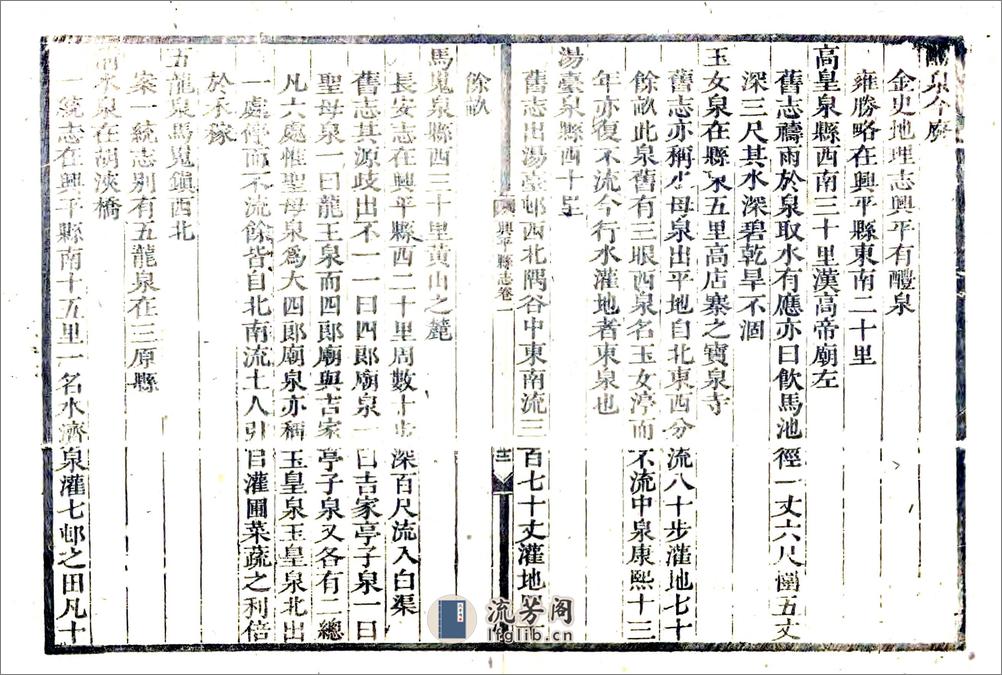 醴泉今廢
金史地理志興平有醴泉
雍勝略在興平縣東南二十里
高皇泉縣西南三十里漢高帝廟左
舊志禱雨於泉取水有應亦曰飲馬池徑一丈六尺圍五丈
深三尺其水深碧乾旱不涸
玉女泉在縣東五里高店寨之寶泉寺
舊志亦稱水母泉出平地自北東西分流八十步灌地七十
餘畝此泉舊有三眼西泉名玉女渟而不流中泉康熙十三
年亦復不流今行水灌地者東泉也
湯臺泉縣西十里
舊志出湯臺邨西北隅谷中東南流三百七十丈灌地
興平縣志卷一
十二
餘畝
馬嵬泉縣西三十里黃山之麓
長安志在興平縣西二十里周數十步深百尺流入白渠
舊志其源歧出不一一曰四郎廟泉一曰吉家亭子泉一曰
聖母泉一曰龍王泉而四郎廟與吉家亭子泉又各有二總
凡六處惟聖母泉爲大四郎廟泉亦稱玉皇泉玉皇泉北出
一處停而不流餘皆自北南流土人引皆灌圃菜蔬之利倍
於禾稼
五龍泉馬嵬鎮西北
案一統志别有五龍泉在三原縣
清水泉在胡浹橋
一統志在興平縣南十五里一名水濟泉灌七邨之田凡十
流芳阁
lfglib.cn